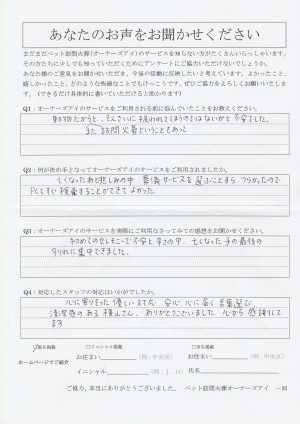 あなたのお声をお聞かせください
まだまだペット訪問火葬(オーナーズアイ)のサービスを知らない方がたくさんいらっしゃいます。
その方たちに少しでも知っていただくためにアンケートにご協力いただけないでしょうか。
あなた様のご意見をお聞かせいただき、今後の活動に反映したいと考えています。よかったこと、
嬉しかったこと、どのような些細なことでもけっこうです。ぜひご協力をよろしくお願いいたします。
(できるだけ具体的に書いていただけると助かります)
Q1:オーナーズアイのサービスをご利用される前に悩んでいたことをお教えください。
動物だからと、ぞんざいに扱われてしまうのではないかと不安でした。
また訪問火葬ということもあって
Q2:何が決め手となってオーナーズアイのサービスをご利用されましたか。
亡くなったあと悲しみの中 葬儀サービスを選ぶことすらつらかったので
PCですぐ検索することができてよかった
Q3:オーナーズアイのサービスを実際にご利用なさってみての感想をお聞かせください。
初めてのセレモニーで不安と辛さの中、亡くなった子の最後の
お別れに集中できました。
Q4:対応したスタッフの対応はいかがでしたか。
心に寄りそった優しい対応 安心 心に届く言葉選び
清潔感のある横山さん、ありがとうございました 心から感謝して
ます
匿名掲載 □イニシャル掲載 □実名掲載
ホームページでご紹介
お住まい (例:中央区) お住まい (例:中央区)
イニシャル (例:J. H) 氏名
ご協力、本当にありがとうございました。 ペット訪問火葬オーナーズアイ 一同